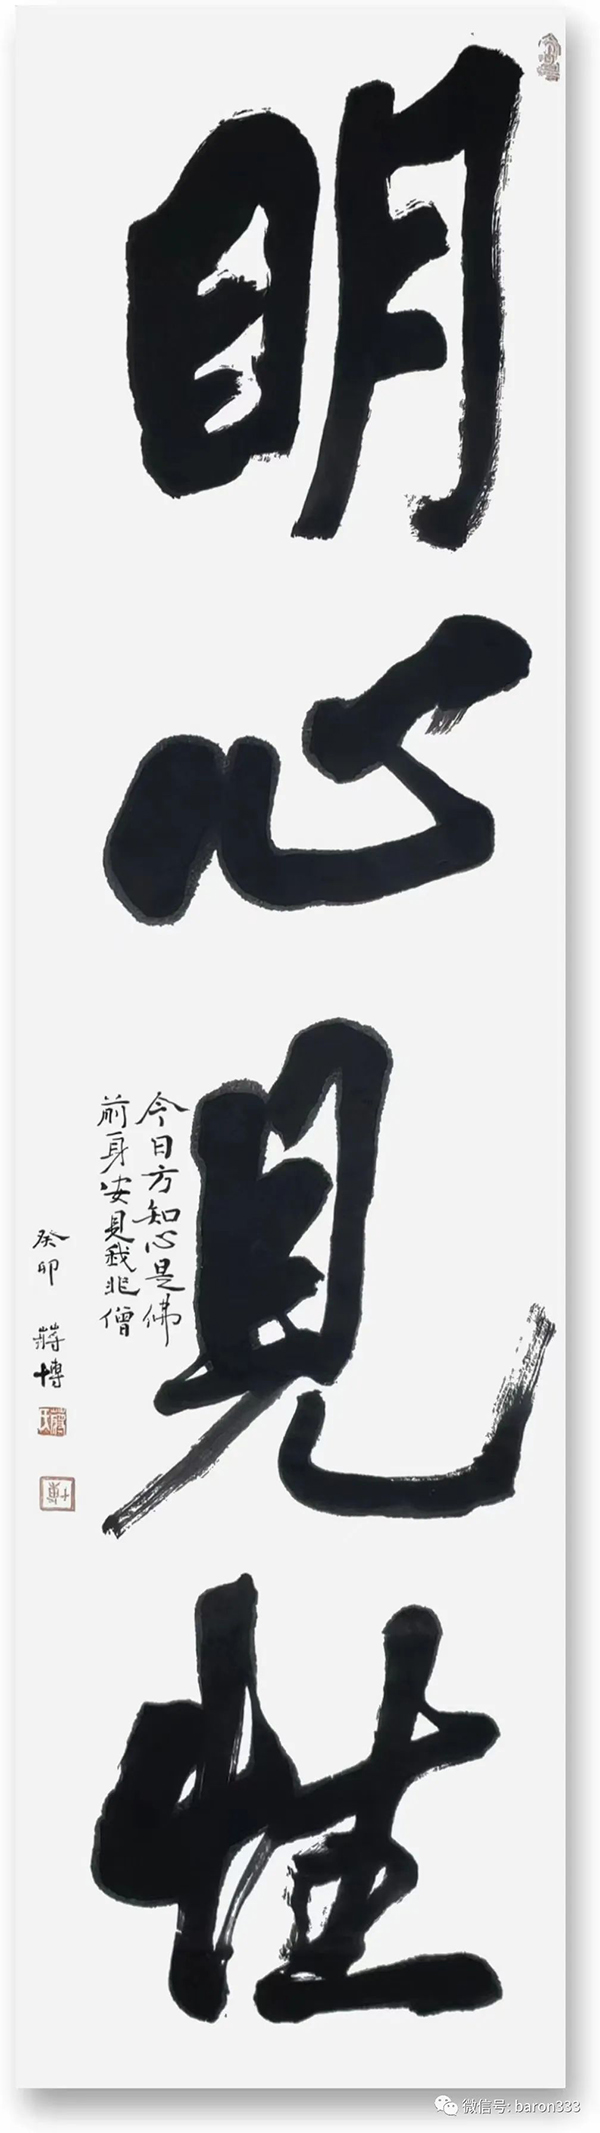 明心見性
今日方知心是佛
前身安見我非僧
癸卯 蔣博
微信号: baron333